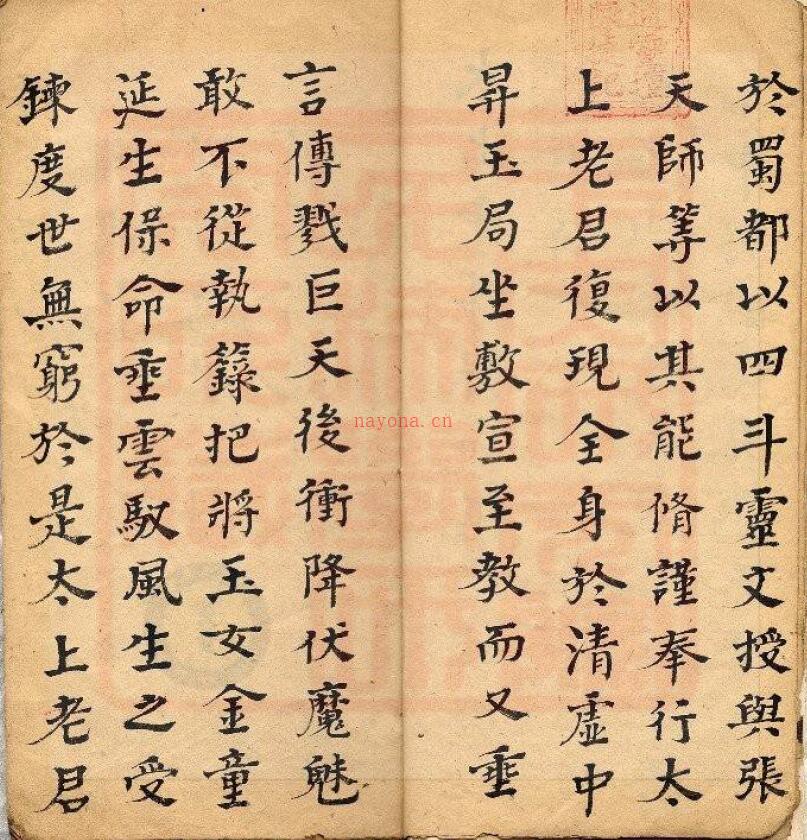 於蜀都以四斗靈文授與張
天師等以其能脩謹奉行太
上老君復現全身於清虛中
昇玉局坐敷宣至教而又垂
言傳戮巨天後衝降伏魔魅
敢不從執籙把將玉女金童
延生保命乘雲馭風生之受
鍊度世無窮於是太上老君
nayona.cn